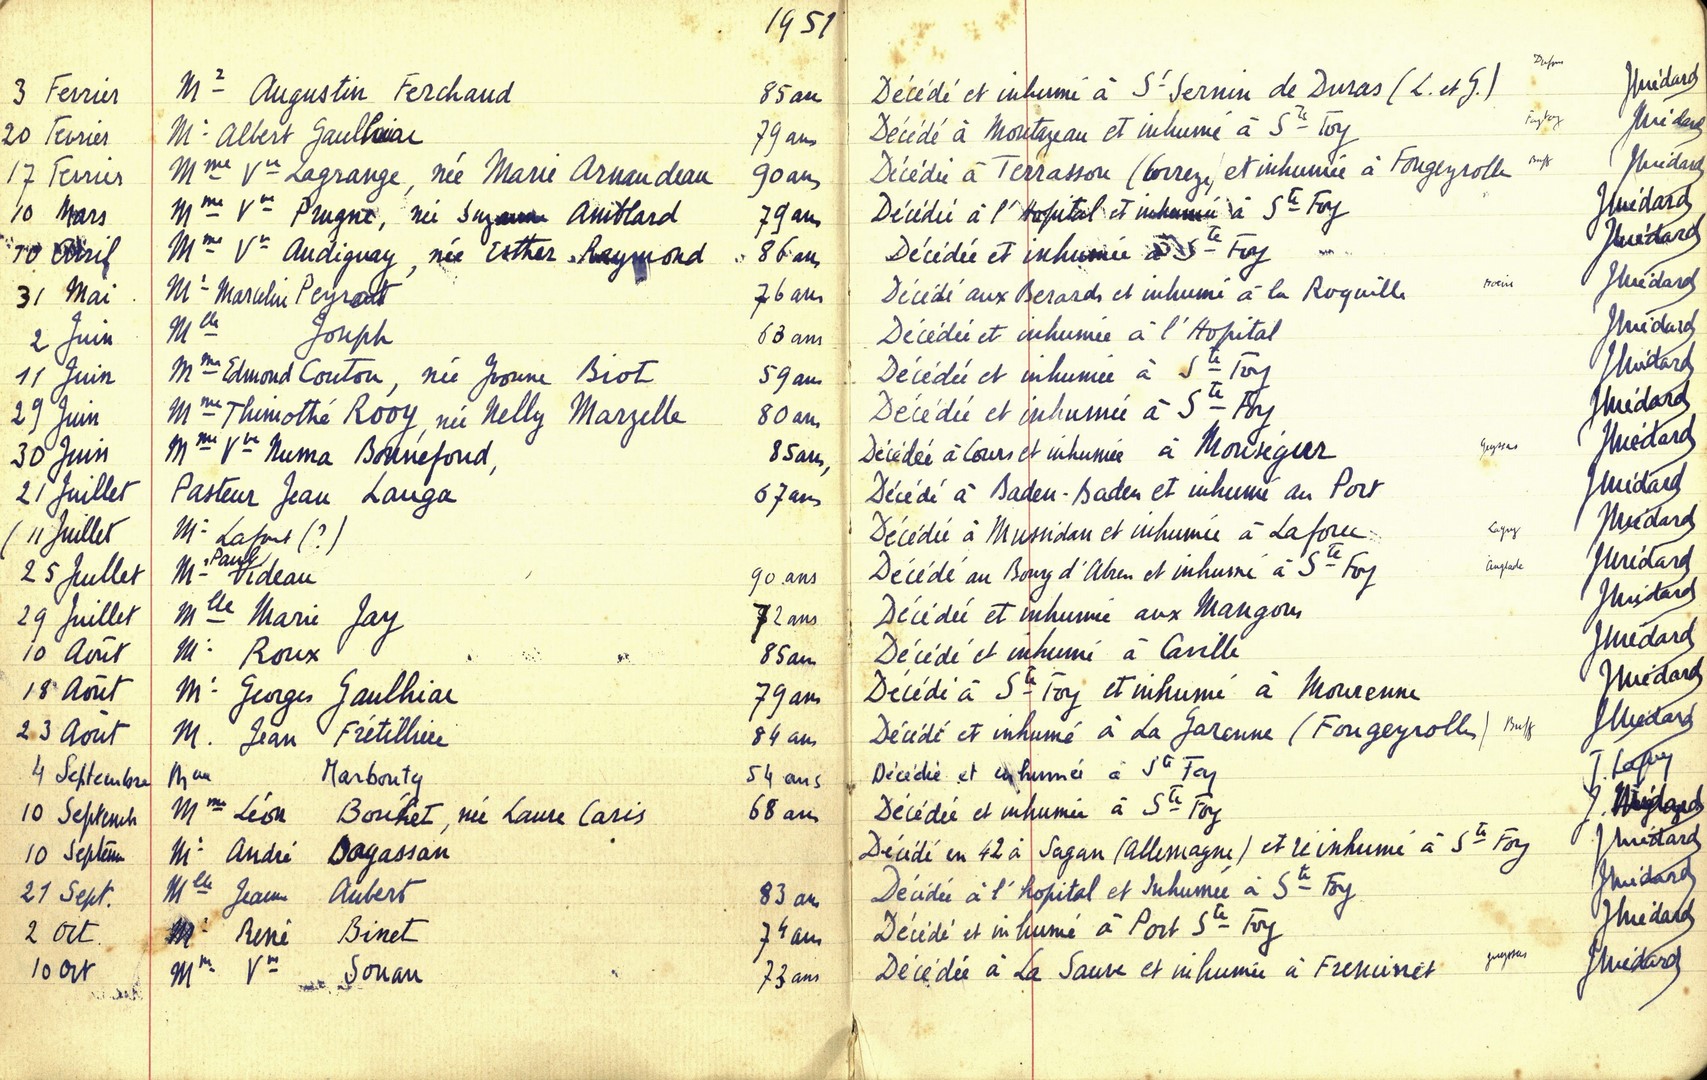 1951
3 Fevrier Mr Augustin Ferchaud 85 ans Décédé et inhumé à St Sernin de Duras (L. et G.) JMédard
20 Fevrier Mr Albert Gaulhiac 79 ans Décédé à Montazeau et inhumé à Ste Foy JMédard
17 Fevrier Mme Vve Lagrange, née Marie Arnaudeau 90 ans Décédée à Terrasson (Correze) et inhumée à Fougeyrolle Buff JMédard
10 Mars Mme Vve Prugne, née Suzanne Amblard 79 ans Décédée à l'Hopital et inhumée à Ste Foy JMédard
10 Avril Mme Vve Audiguay, née Esther Raymond 86 ans Décédée et inhumée à Ste Foy JMédard
31 Mai Mr Marcelin Peyraut 76 ans Décédé aux Berards et inhumé à la Roquille JMédard
2 Juin Mlle Joseph 63 ans Décédée et inhumée à l'Hopital JMédard
11 Juin Mme Edmond Coutou, née Yvonne Biot 59 ans Décédée et inhumée à Ste Foy JMédard
29 Juin Mme Thimothé Rooy, née Nelly Marzelle 80 ans Décédée et inhumée à Ste Foy JMédard
30 Juin Mme Vve Numa Bonnefond, 85 ans, Décédée à Cours et inhumée à Monségur JMédard
21 Juillet Pasteur Jean Lauga 67 ans Décédé à Baden-Baden et inhumé au Port JMédard
(11 Juillet Mr Lafont (?) Décédé à Mussidan et inhumée à Laforce JMédard
25 Juillet Mr Paul Videau 90 ans Décédé au Bourg d'Abren et inhumé à Ste Foy Anglade JMédard
29 Juillet Mlle Marie Jay 72 ans Décédée et inhumée aux Mangons JMédard
10 Août Mr Roux 85 ans Décédé et inhumé à Caville JMédard
18 Août Mr Georges Gaulhiac 79 ans Décédé à Ste Foy et inhumé à Mourenne JMédard
23 Août M. Jean Frétillère 84 ans Décédé et inhumé à La Garenne (Fougeyrolles) Buff JMédard
4 Septembre Mme Marbouty 54 ans Décédée et inhumée à Ste Foy
10 Septemb Mme Léon Bouhet, née Laure Caris 68 ans Décédée et inhumée à Ste Foy J. Médard
10 Septem Mr André Dagassan Décédé en 42 à Sagan (Allemagne) et réinhumé à Ste Foy JMédard
21 Sept. Mlle Jeanne Aubert 83 ans Décédée à l'hopital et Inhumée à Ste Foy JMédard
2 Oct. Mr René Binet 74 ans Décédé et inhumé à Port Ste Foy JMédard
10 Oct Mme Vve Souan 73 ans Décédée à La Sauve et inhumée à Freminet JMédard